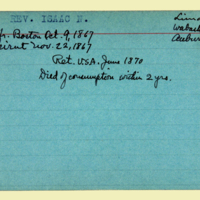 REV. ISAAC N.
Boston Oct. 9, 1867
Beirut Nov. 22, 1867
Ret. USA. June 1870
Died of consumption within 2 yrs.